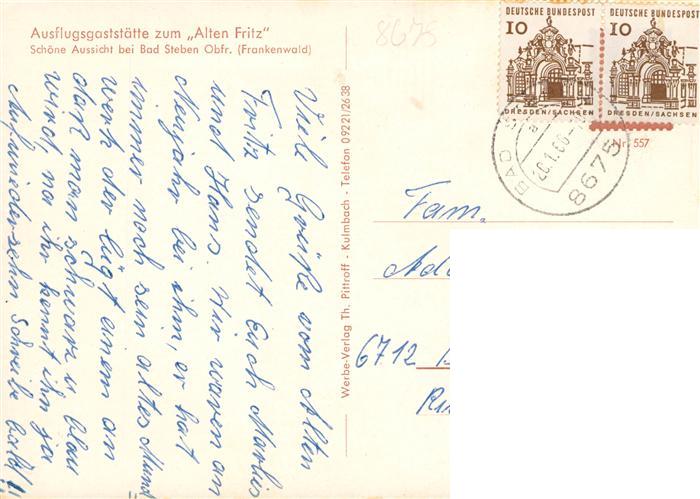 Ausflugsgaststätte zum „Alten Fritz"
Schöne Aussicht bei Bad Steben Obfr. (Frankenwald)
8675
DEUTSCHE BUNDESPOST
10
DRESDEN/SACHSEN
DEUTSCHE BUNDESPOST
10
DRESDEN/SACHSEN
Nr. 557
BAD
20.1.66
8675
Viele Grüße vom Alten
Fritz sendet Euch Marlis
und Hans. Wir waren an
Neujahr bei ihm, er hat
immer noch sein altes Mund
werk der lügt einem an
daß man schwarz u. blau
wird, na ihr kennt ihn ja
Aufwiedersehn. Schreibe bald!!
Werbe-Verlag Th. Pittroff - Kulmbach - Telefon 09221/2638
Fam.
6712